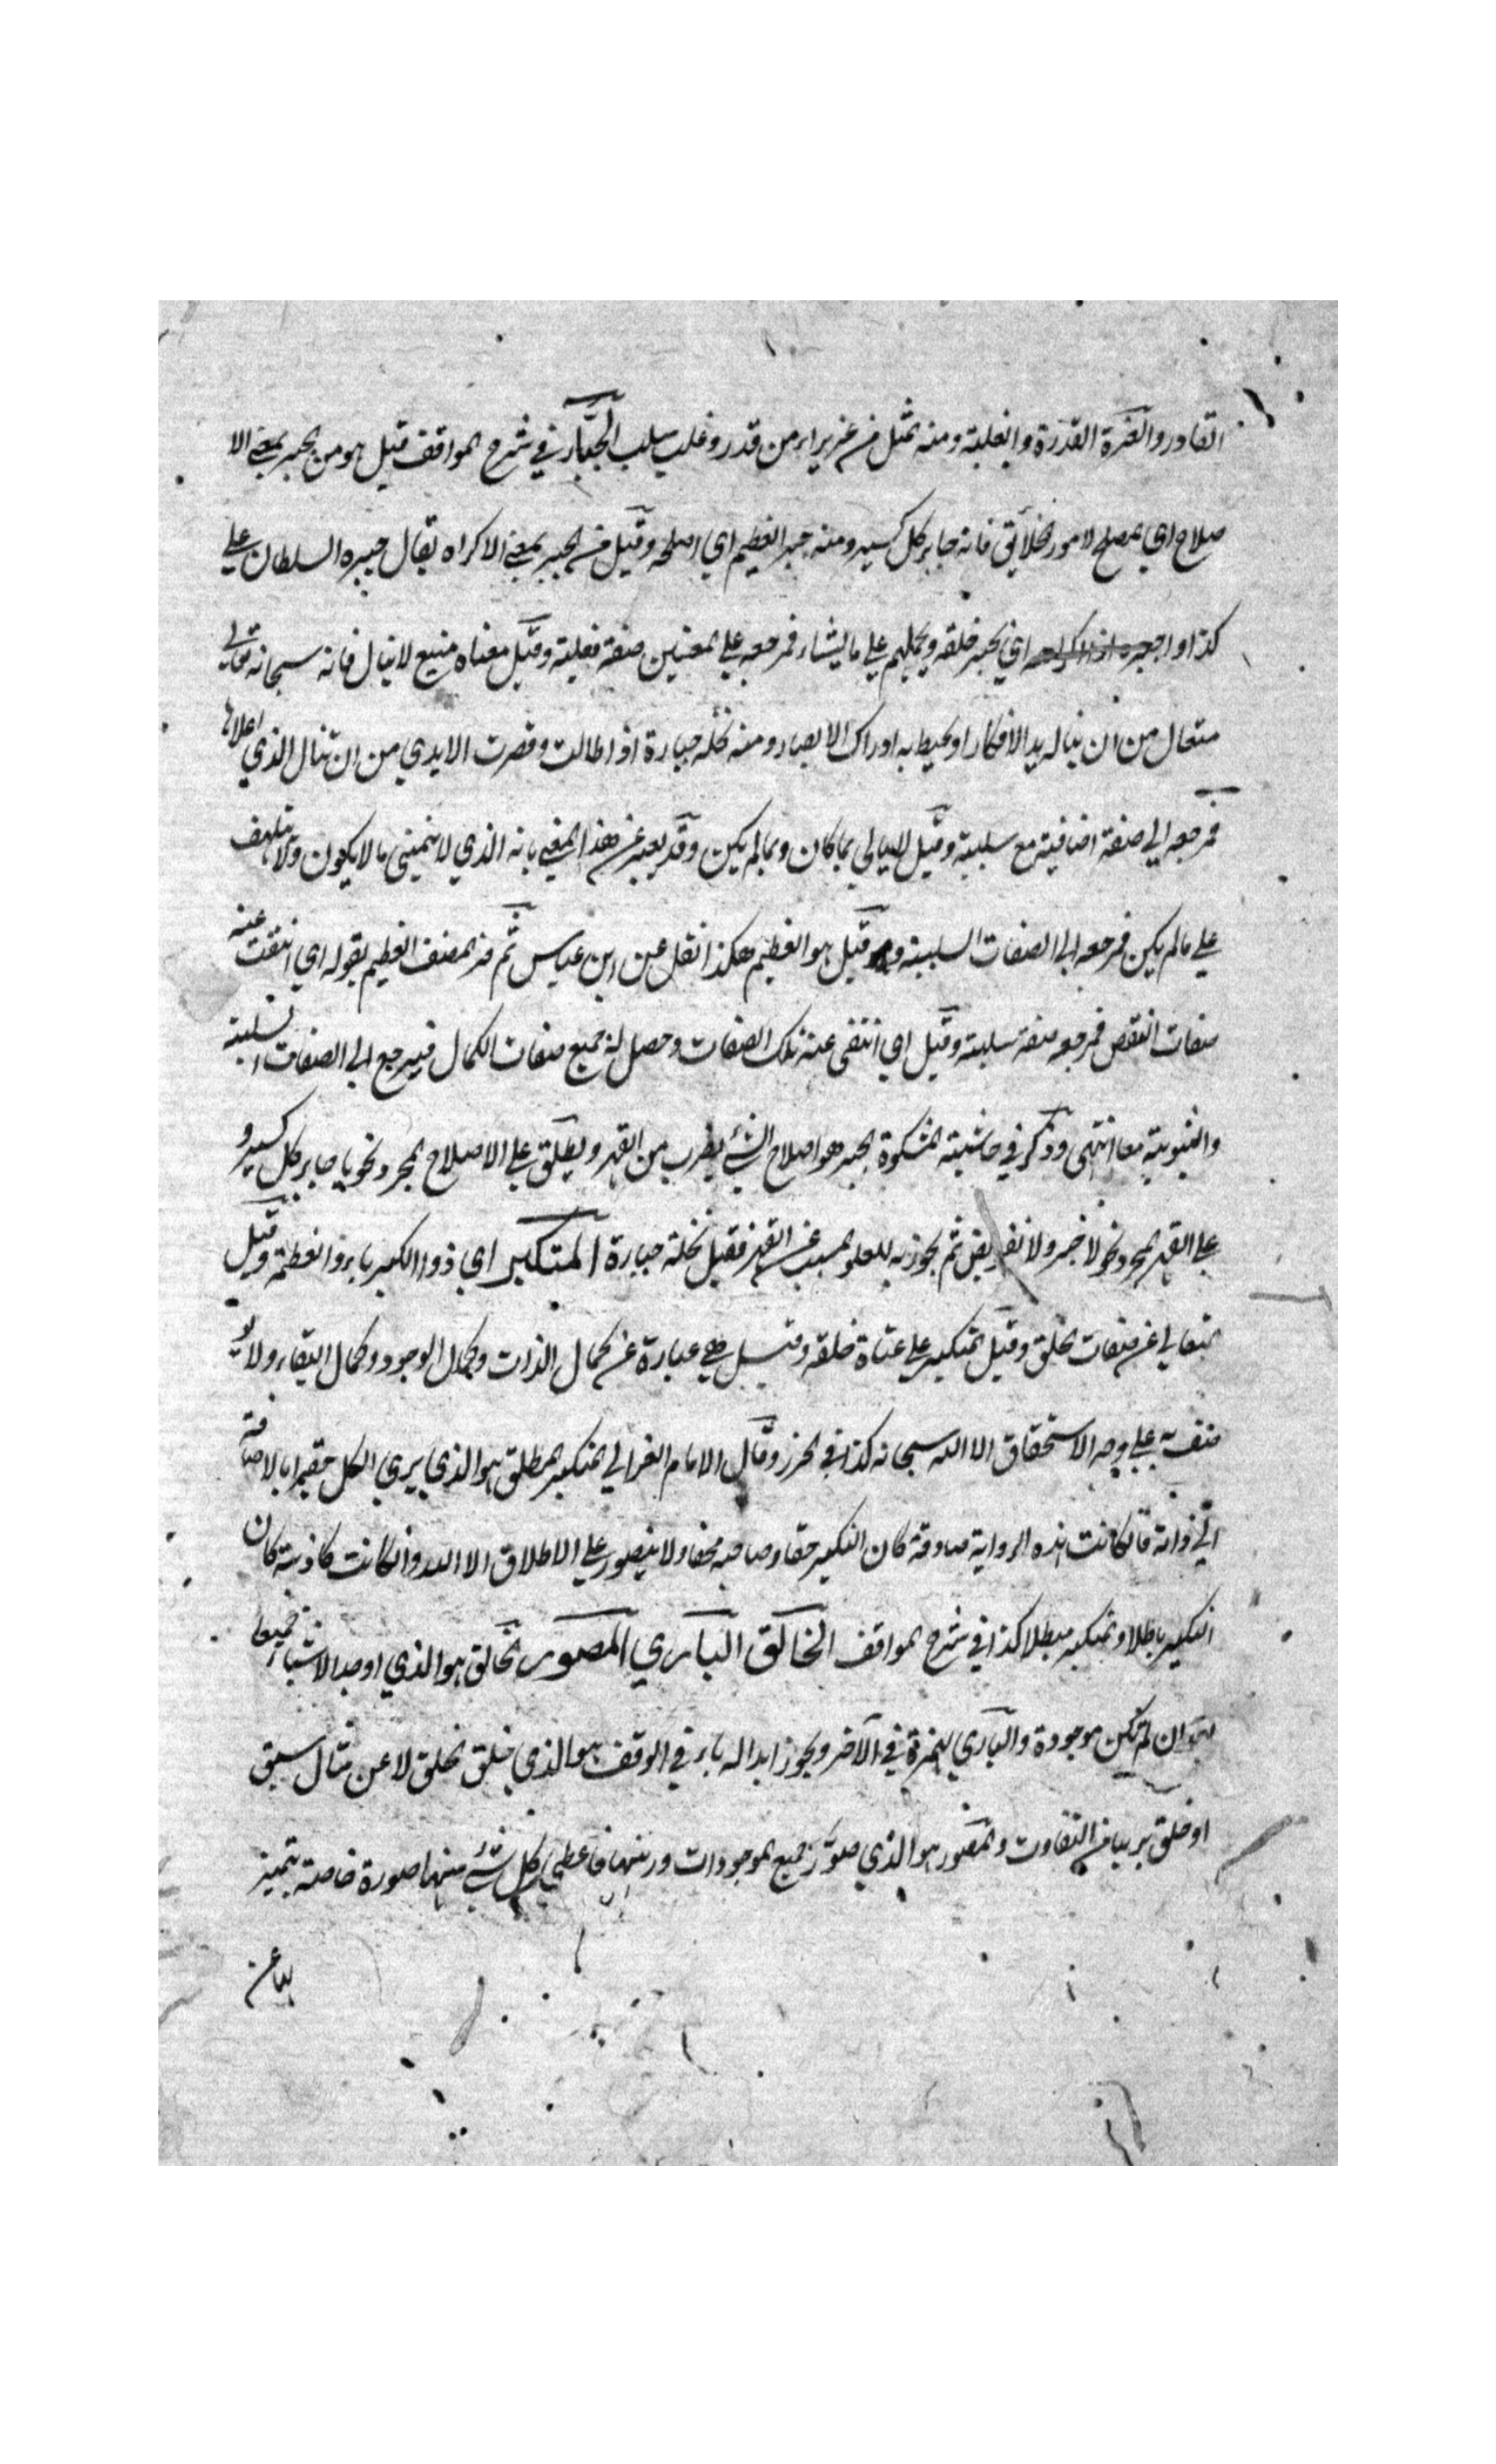 القادر والعزة القدرة والغلبة ومنه المثل من عز بز اي من قدر وغلب سلب الجبار في شرح المواقف قيل هو من الجبر بمعنى الا
صلاح اي المصلح لامور الخلائق فانه جابر كل كسير ومنه جبر العظم اي اصلحه وقيل من الجبر بمعنى الاكراه يقال جبره السلطان على
كذا واجبره اذا اكرهه اي يجبر خلقه ويحملهم على ما يشاء فمرجعه على المعنيين صفة فعلية وقيل معناه منيع لا ينال فانه سبحانه تعالى
متعال من ان يناله يد الافكار او يحيط به ادراك الابصار ومنه نخلة جبارة اذا طالت وقصرت الايدي من ان تنال الذي اعلاها
فمرجعه الى صفة اضافية مع سلبية وقيل لا يبالي بما كان وبما لم يكن وقد يعبر عن هذا المعنى بانه الذي لا يتمنى ما لا يكون ولا يتلهف
على ما لم يكن فمرجعه الى الصفات السلبية وقيل هو العظيم هكذا نقل عن ابن عباس ثم فسر المصنف العظيم بقوله اي انتفت عنه
صفات النقص فمرجعه صفة سلبية وقيل اي انتفى عنه تلك الصفات وحصل له جميع صفات الكمال فيرجع الى الصفات السلبية
والثبوتية معا انتهى وذكر في حاشية المشكوة الجبر هو اصلاح الشئ بضرب من القهر ويطلق على الاصلاح المجرد نحو يا جابر كل كسير و
على القهر المجرد نحو لا جبر ولا تفويض ثم تجوز به للعلو المسبب عن القهر فقيل نخلة جبارة المتكبر اي ذو الكبرياء والعظمة وقيل
المتعالي عن صفات الخلق وقيل المتكبر على عتاة خلقه وقيل هي عبارة عن كمال الذات وكمال الوجود وكمال البقاء ولا يو
صف به على وجه الاستحقاق الا الله سبحانه كذا في الحرز وقال الامام الغزالي المتكبر المطلق هو الذي يرى الكل حقيرا بالاضافة
الى ذاته فان كانت هذه الرواية صادقة كان التكبر حقا وصاحبه محقا ولا يتصور على الاطلاق الا الله وان كانت كاذبة كان
التكبر باطلا والمتكبر مبطلا كذا في شرح المواقف الخالق الباري المصور الخالق هو الذي اوجد الاشياء جميعا
بعد ان لم تكن موجودة والباري بالهمزة في الآخر ويجوز ابداله ياء في الوقف هو الذي خلق الخلق لا عن مثال سبق
او خلق بريا من التفاوت والمصور هو الذي صور جميع الموجودات ورتبها فاعطى كل شئ منها صورة خاصة يتميز
بها عن